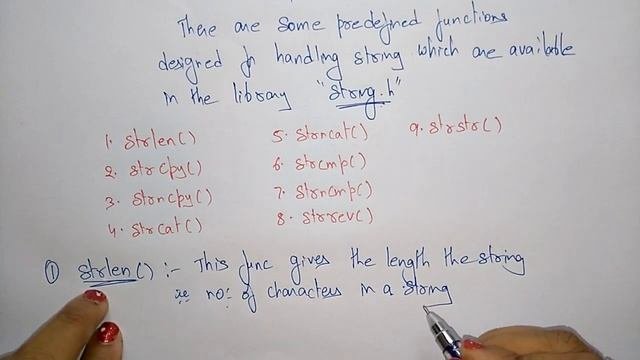 There are some predefined functions
designed for handling string which are available
in the library "string.h"
1. strlen()
2. strcpy()
3. strncpy()
4. strcat()
5. strncat()
6. strcmp()
7. strncmp()
8. strrev()
9. strstr()
① strlen() :- This func gives the length the string
ie no: of characters in a string